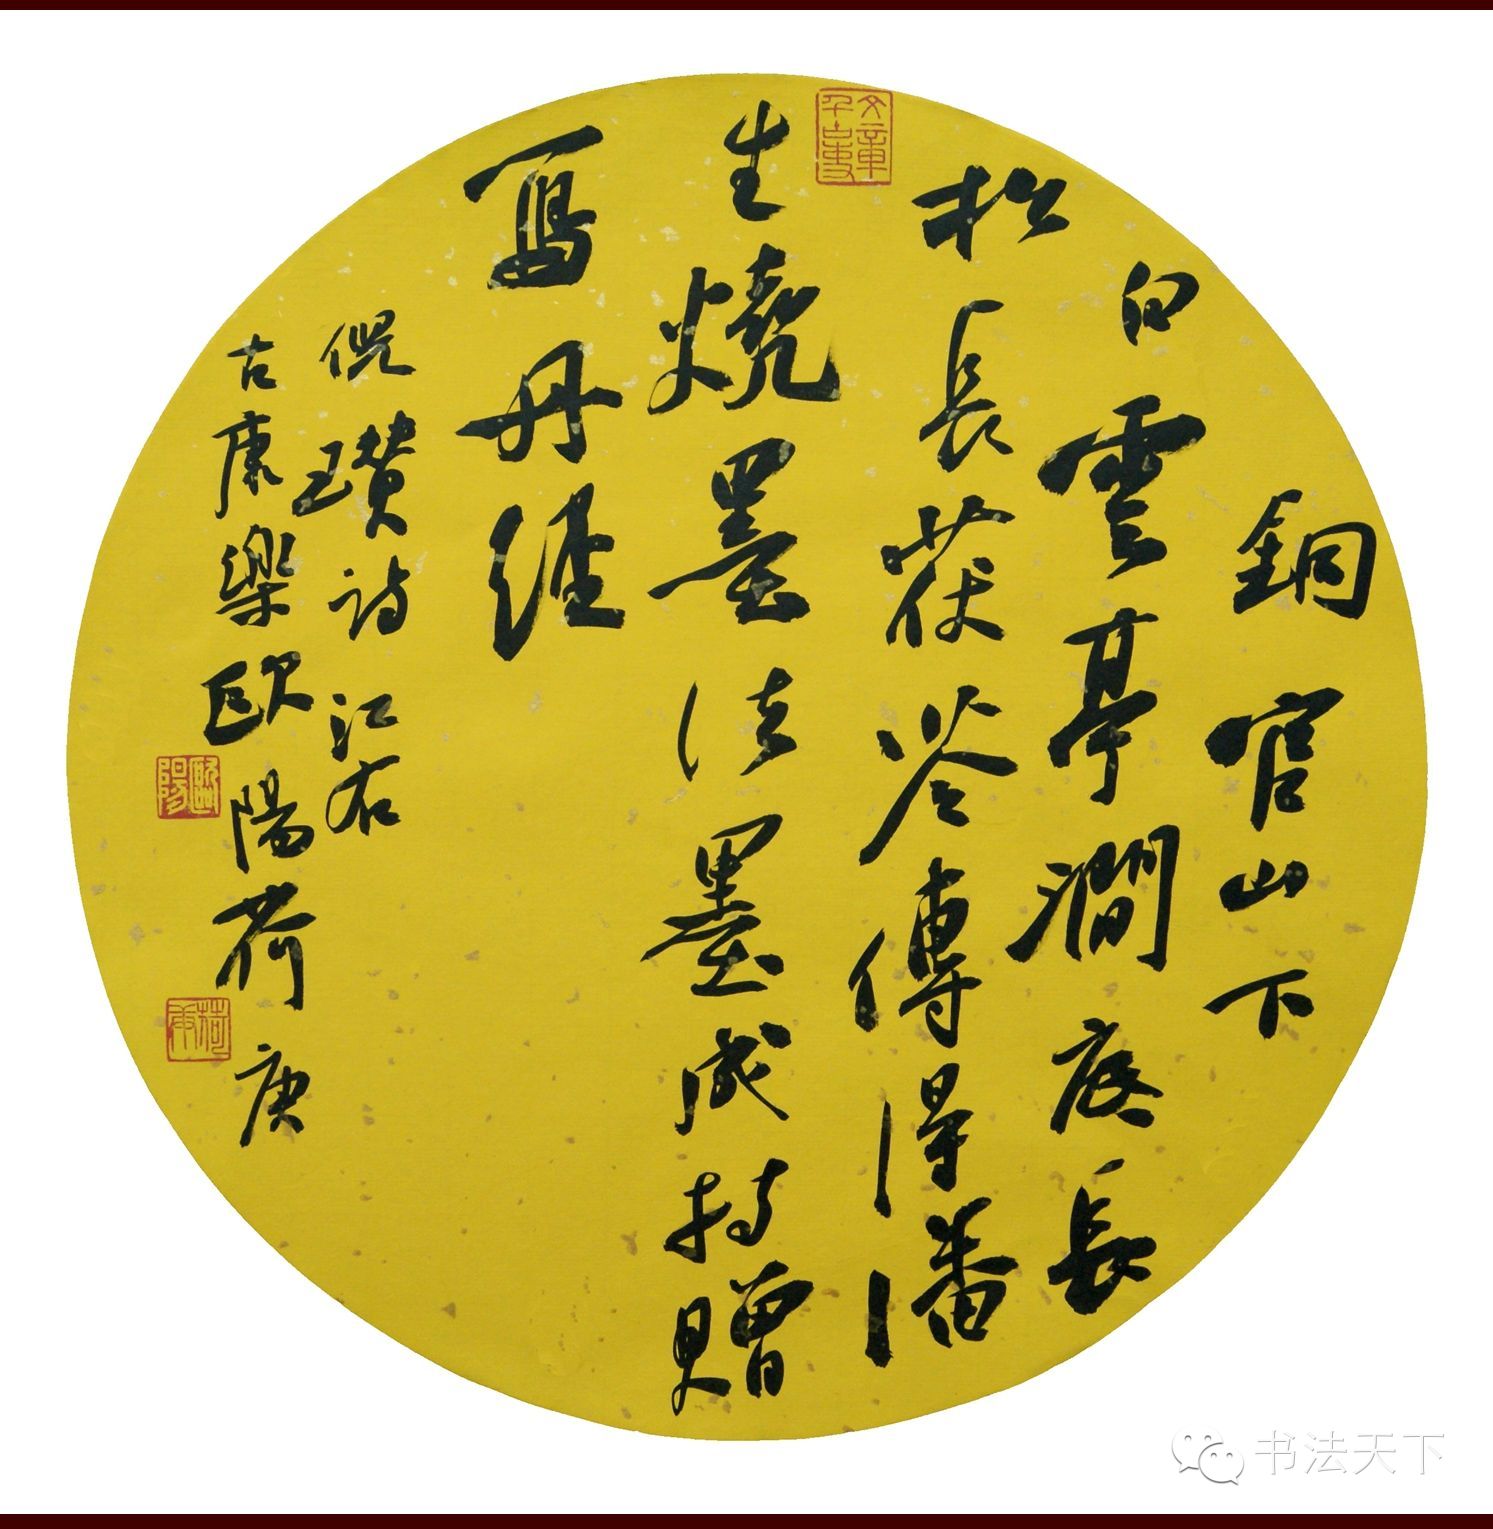 銅官山下
白雲亭澗底長
松長茯苓傳得潘
生燒墨法墨成持贈
寫丹經
倪瓚詩江右
古康樂歐陽荷庚
文章千古事
歐陽
荷庚
书法天下